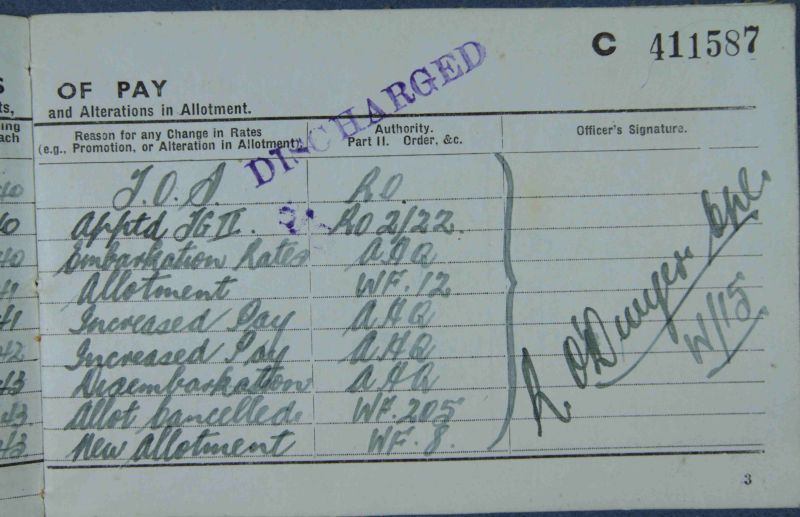 C 411587
S OF PAY
ts, and Alterations in Allotment.
ing
ach
Reason for any Change in Rates
(e.g., Promotion, or Alteration in Allotment)
Authority.
Part II. Order, &c.
Officer's Signature.
DISCHARGED
40 T.O.S. RO
40 Apptd TG II. RO 2/22.
40 Embarkation Rates AHQ
41 Allotment WF. 12
41 Increased Pay AHQ
42 Increased Pay AHQ
43 Disembarkation AHQ
43 Allot cancelled. WF. 205
43 New Allotment WF. 8.
R O'Dwyer Cpl.
W/15
3